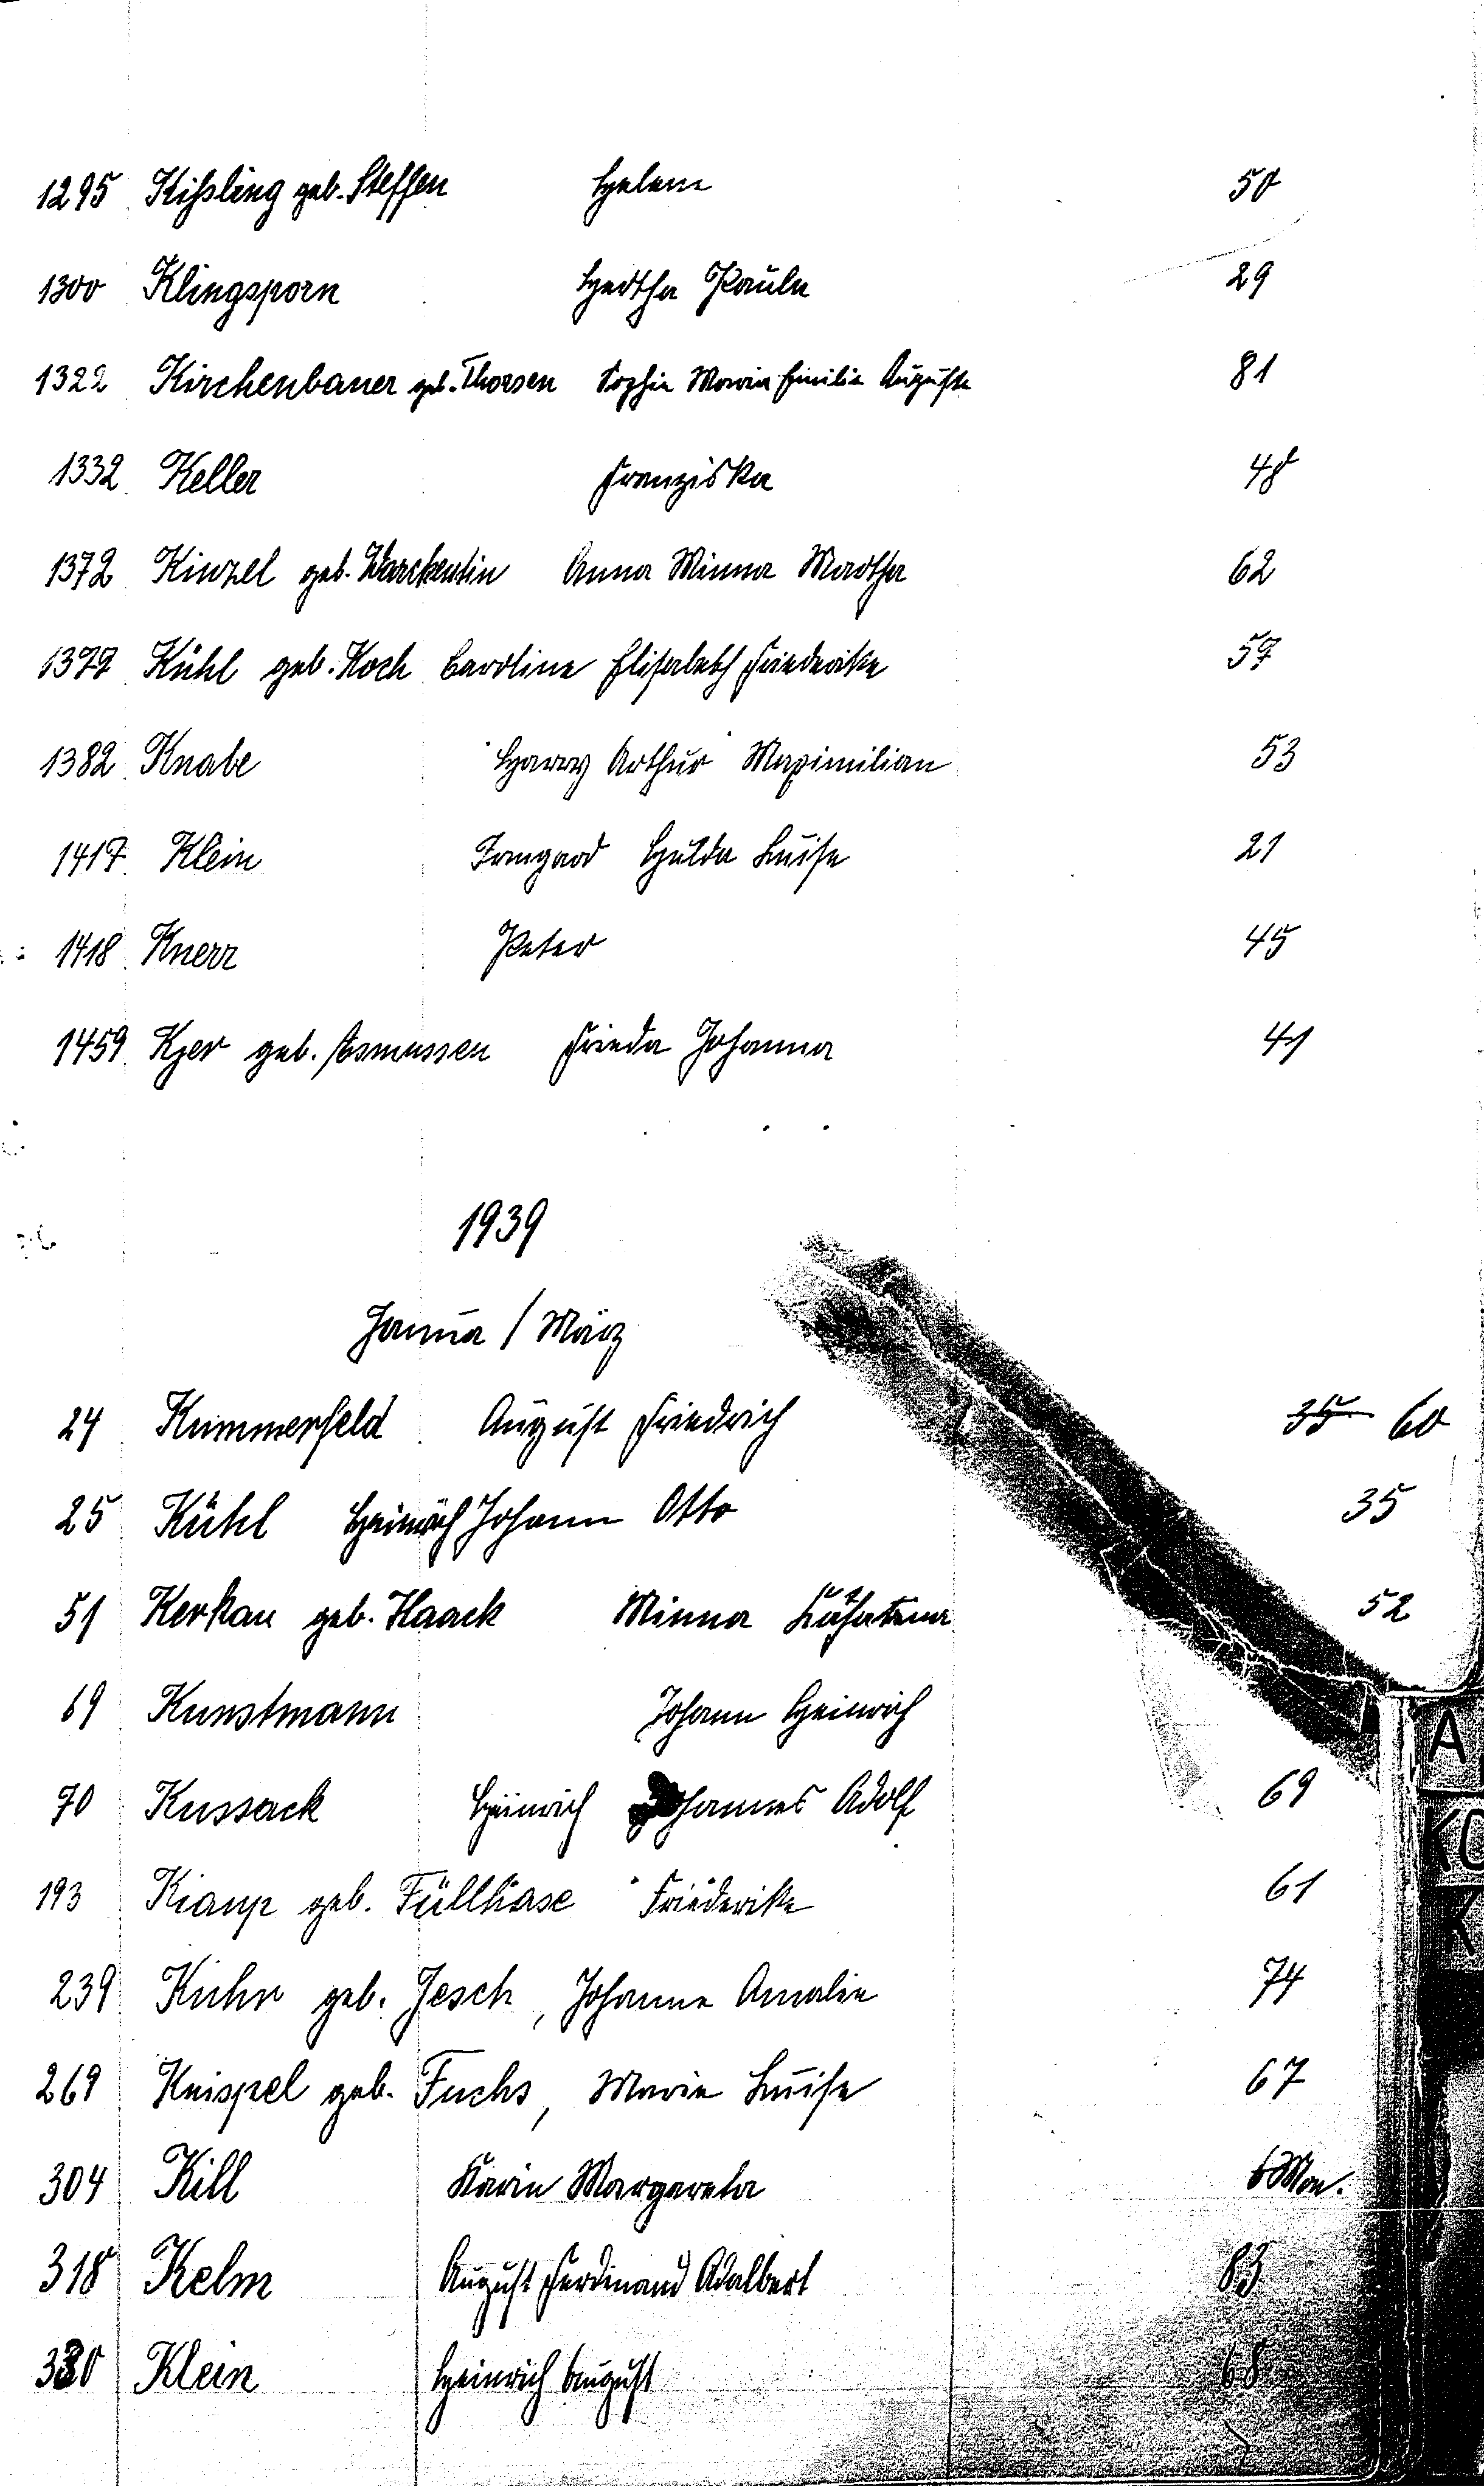 1295 Kißling geb. Steffen Helene 50
1300 Klingsporn Hertha Paula 29
1322 Kirchenbauer geb. Thorsen Sophie Maria Emilie Auguste 81
1332 Keller Franziska 48
1372 Kinzel geb. Warckentin Anna Minna Martha 62
1377 Kühl geb. Koch Caroline Elisabeth Friederike 57
1382 Knabe Harry Arthur Maximilian 53
1417 Klein Irmgard Hulda Luise 21
1418 Knerr Peter 45
1459 Kjer geb. Asmussen Frieda Johanna 41
1939
Janua / März
24 Kummerfeld August Friedrich 35 60
25 Kühl Heinrich Johann Otto 35
51 Kerkau geb. Haack Minna 52
69 Kunstmann Johann Heinrich
A
70 Kussack Heinrich Johannes Adolf 69
KO
193 geb. Füllhase Friederike 61
K
239 Kuhr geb. Jesch, Johanne Amalie 74
269 Knispel geb. Fuchs, Marie Luise 67
304 Kill Karin Margareta 6 Mon.
318 Kelm August Ferdinand Adalbert 83
330 Klein Heinrich August 68